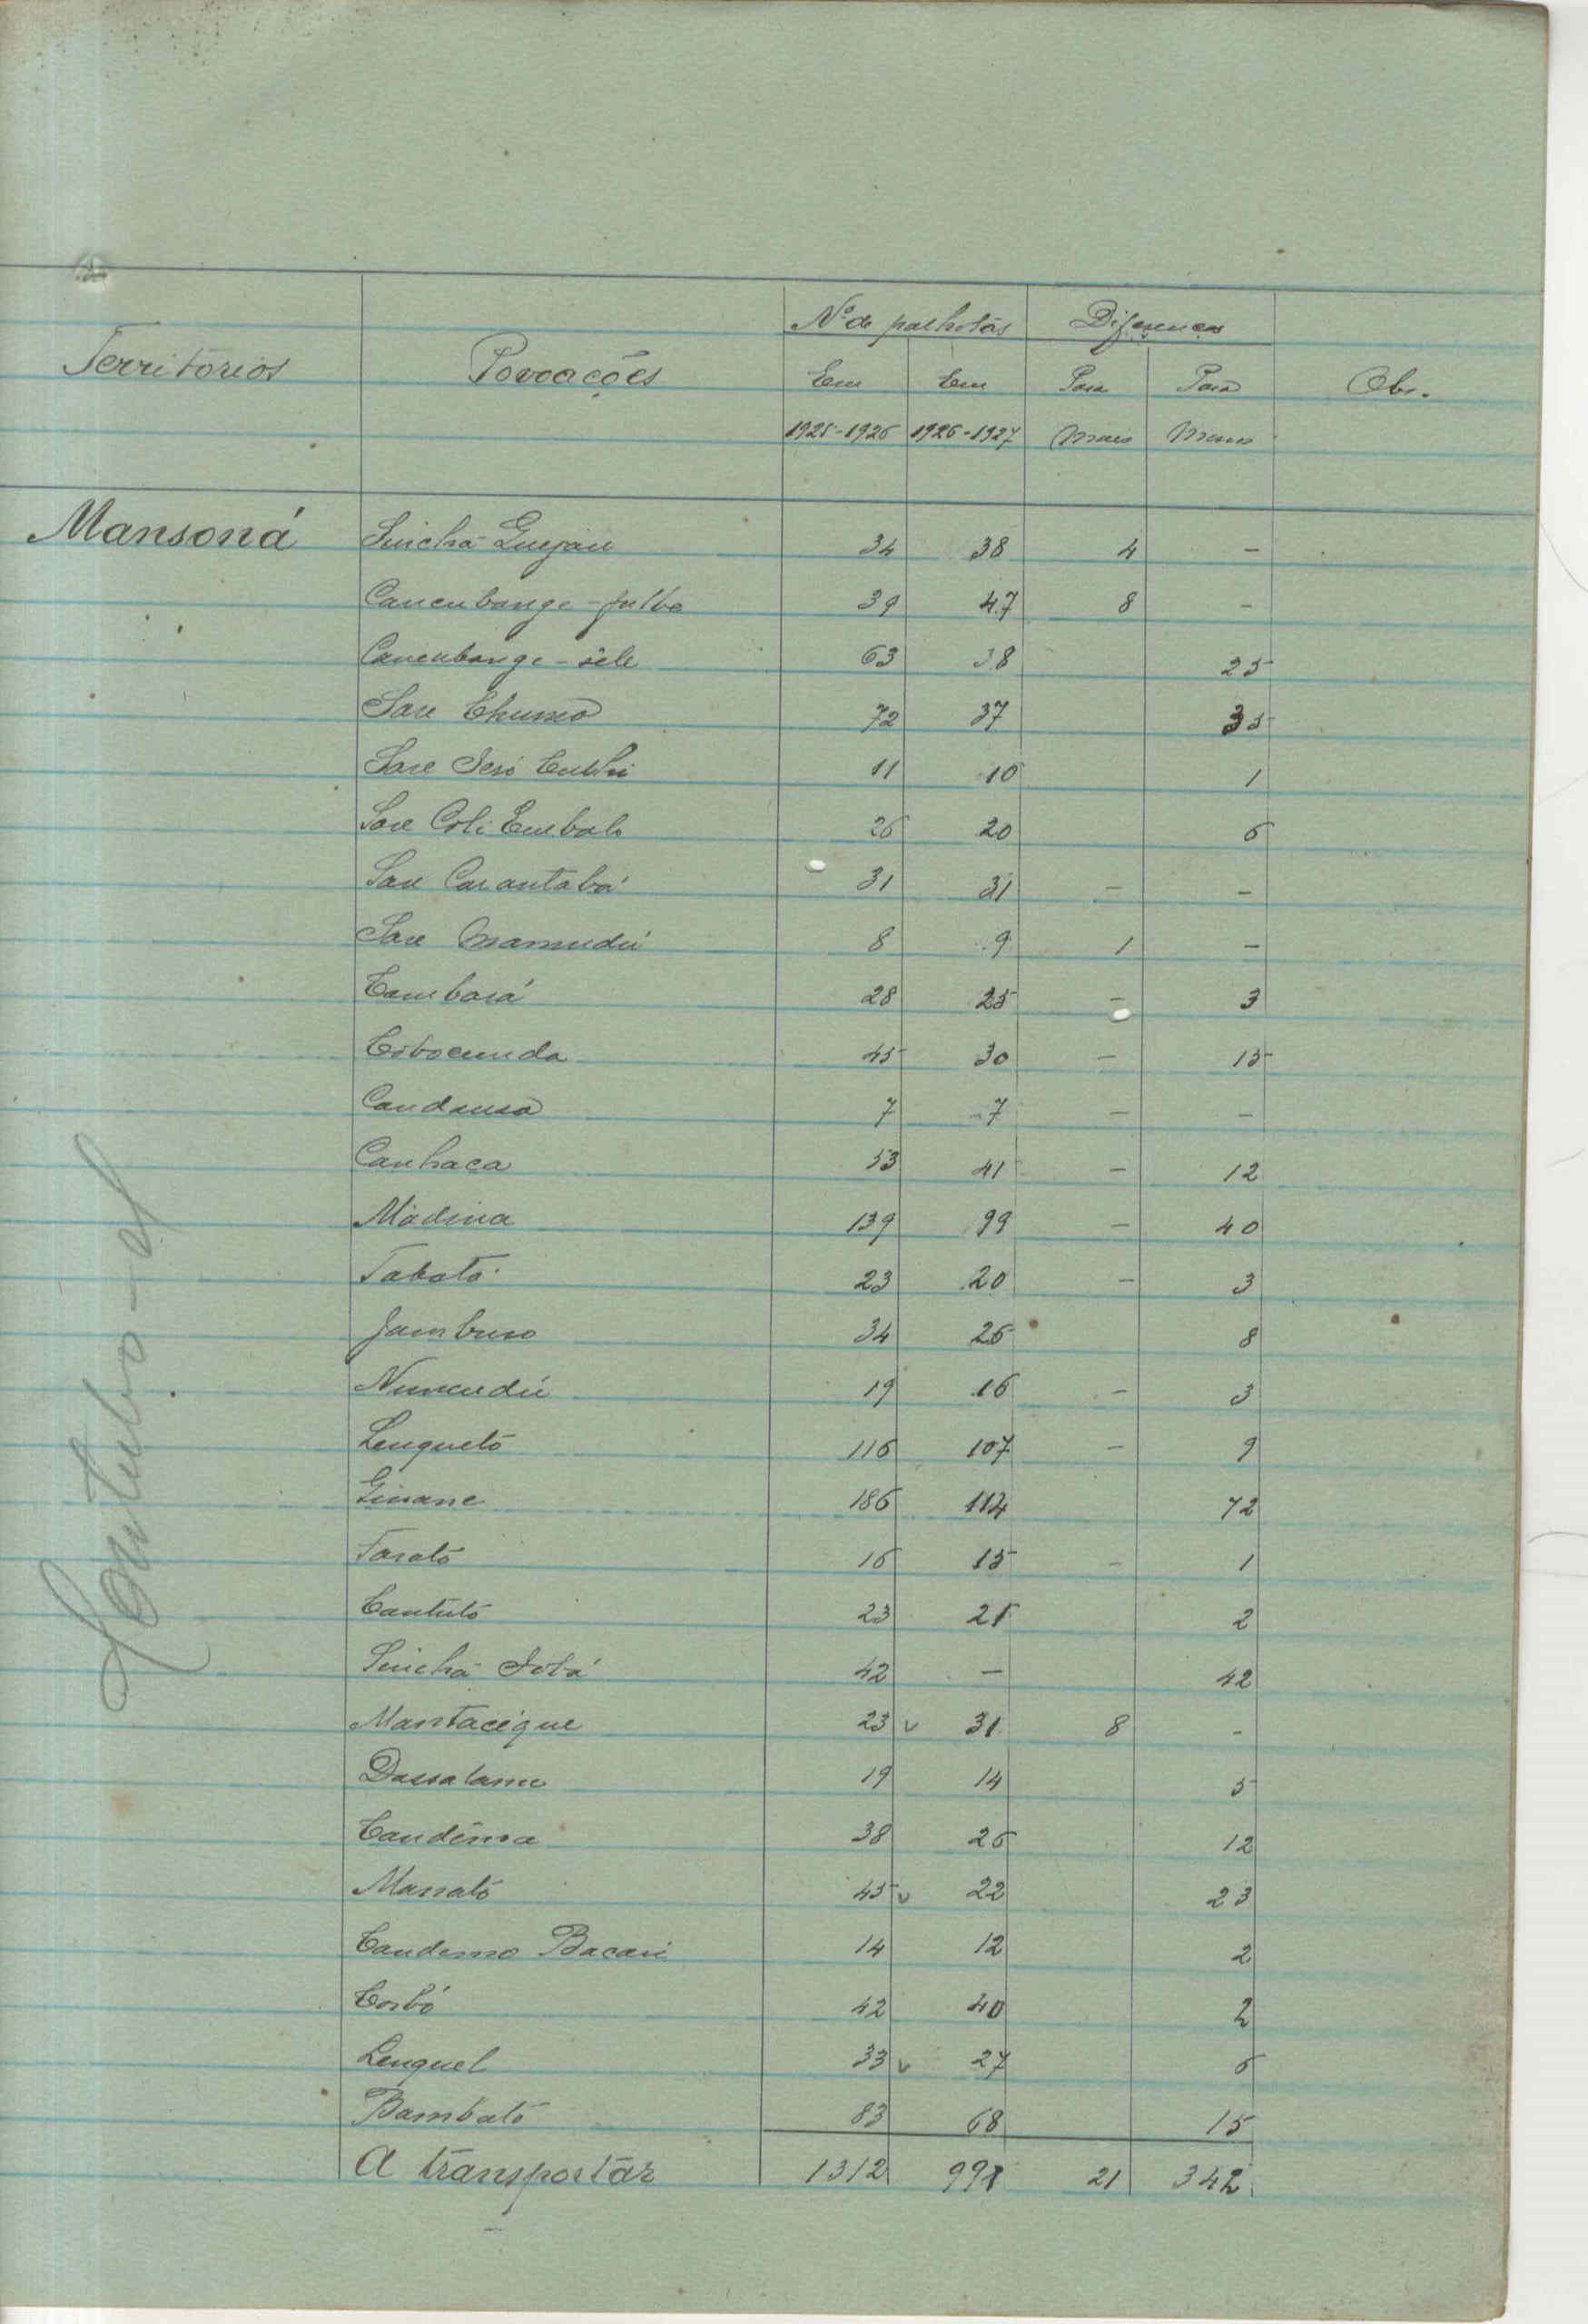 Nº de palhotas Diferença
Territorios Povoações Em Em Para Para Obs.
1925-1926 1926-1927 Mais Menos
Mansoná Sinchã 34 38 4 -
Canenbange - fulbe 39 47 8 -
Canenbange - sêle 63 38 25
Sare 72 37 35
Sare 11 10 1
Sare Coli Embalo 26 20 6
Sare Carantabá 31 31 - -
Sare Mamudú 8 9 1 -
Cambará 28 25 - 3
45 30 - 15
7 7 - -
Canhaca 53 41 - 12
Madina 139 99 - 40
Tabató 23 20 - 3
34 26 8
19 16 - 3
Lenquetó 116 107 - 9
Ginane 186 114 72
16 15 - 1
Cantutó 23 21 2
Sinchã Jotá 42 - 42
Mantacique 23 v 31 8 -
19 14 5
38 26 12
45 v 22 23
14 12 2
42 40 2
Lenquel 33 v 27 6
Bambató 83 68 15
A transportar 1312 991 21 342